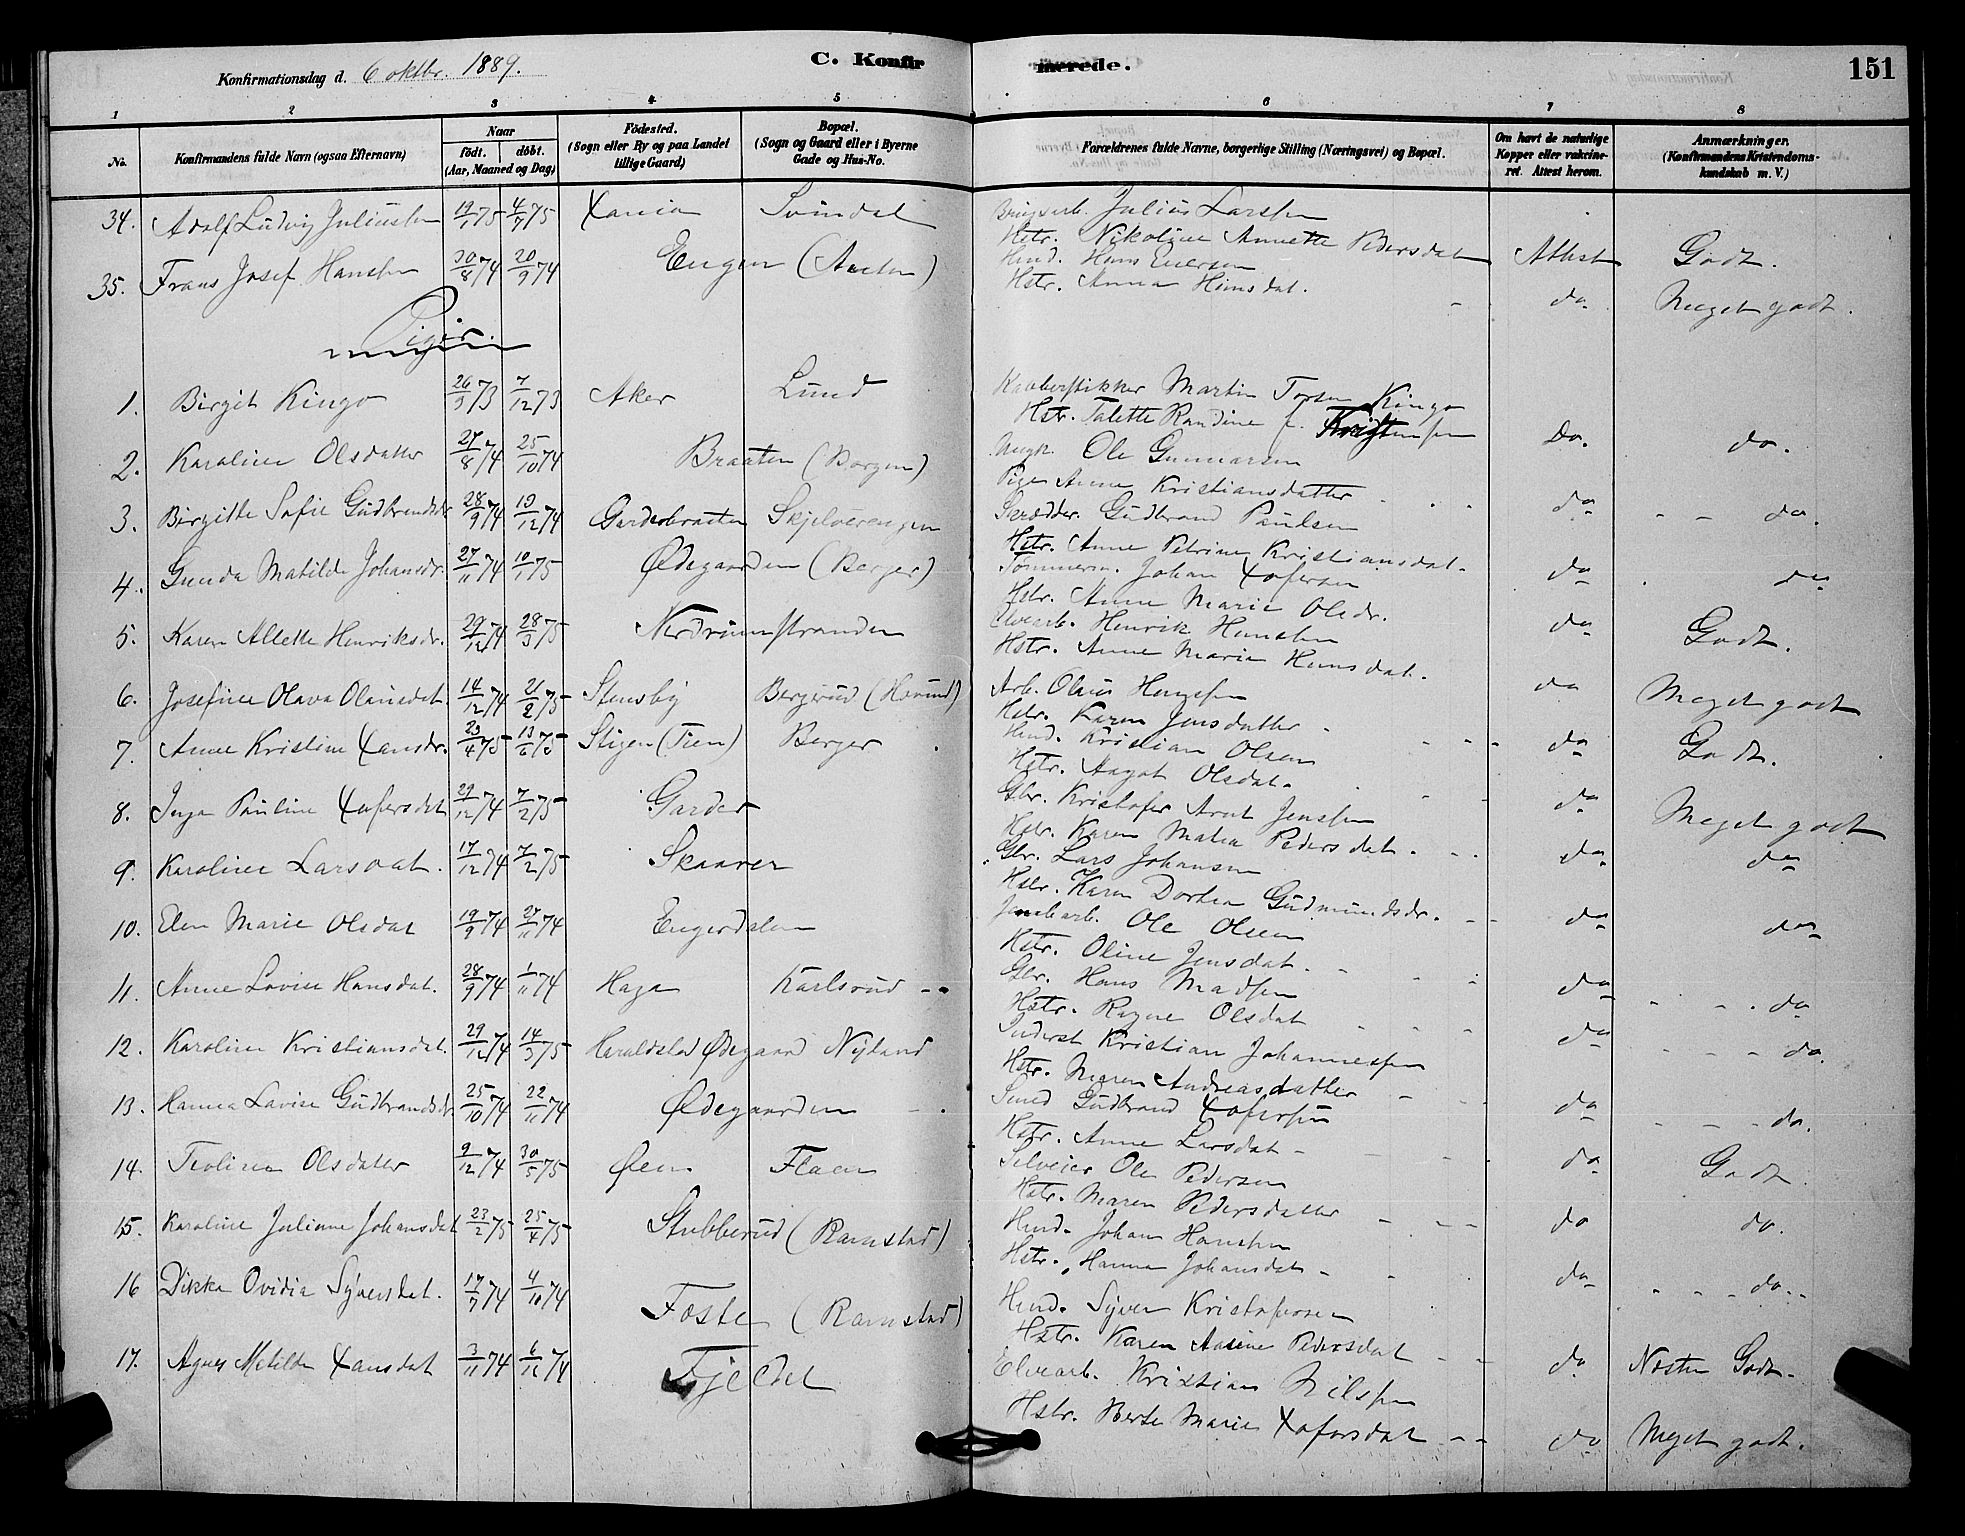 Konfirmationsdag d. 6 oktbr. 1889.
C. Konfirmerede.
151
1 2 3 4 5 6 7 8
No.
Konfirmandens fulde Navn (ogsaa Efternavn)
Naar
født. døbt.
(Aar, Maaned og Dag)
Fødested.
(Sogn eller By og paa Landet
tillige Gaard)
Bopæl.
(Sogn og Gaard eller i Byerne
Gade og Hus-No.
Forældrenes fulde Navne, borgerlige Stilling (Næringsvei) og Bopæl.
Om havt de naturlige
Kopper eller vakcine-
ret. Attest herom.
Anmærkninger.
(Konfirmandens Kristendoms-
kundskab m. V.)
34. Adolf Ludvig Juliussen 19/1 75 4/7 75 Xania Svindal
Brugsarb. Julius Larssen
Hstr. Nikoline Annette Pedersdat Attest Godt.
35. Frans Josef Hanssen 30/8 74 20/9 74 Engen (Austen)
Hmd. Hans Evensen
Hstr. Anna Hansdat. do Meget godt.
Piger.
1. Birgit Kingo 26/9 73 7/12 73 Aker Lund
Kobberstikker Martin Torsen Kingo
Hstr. Talette Randine f. Kristensen Do. do.
2. Karoline Olsdatter 27/8 74 25/10 74 Braaten (Borgen)
Ungk. Ole Gunnarsen
Pige Anne Kristiansdatter do do.
3. Birgitte Sofie Gudbrandsdr 28/9 74 19/12 74 Garderbraaten Skjelverengen
Skrædder. Gudbrand Paulsen
Hstr. Anne Petrine Kristiansdat. do do
4. Gunda Matilde Johansdr. 27/11 74 10/1 75 Ødegaarden (Berger)
Tømmerm. Johan Xofersen
Hstr. Anne Marie Olsdr. do Godt.
5. Karen Allette Henriksdr. 29/12 74 28/3 75 Nerdrumstranden
Elvearb. Henrik Hanssen
Hstr. Anne Marie Hansdat. do Meget godt
6. Josefine Olava Olausdat 14/12 74 21/2 75 Stensby Bergerud (Hovind)
Arb. Olaus Hanssen
Hstr. Karen Jensdatter do Godt.
7. Anne Kristine Xansdr. 23/4 75 13/6 75 Stigen (Tien) Berger
Hmd. Kristian Olsen
Hstr. Aagot Olsdat. do Meget godt
8. Inga Pauline Xofersdat 29/12 74 7/2 75 Garder
Gbr. Kristofer Arnt Jenssen
Hstr. Karen Matea Pedersdat. do do
9. Karoline Larsdat. 17/12 74 7/2 75 Skaarer
Gbr. Lars Johansen
Hstr. Karen Dortea Gudmundsdr. do do
10. Elen Marie Olsdat 19/9 74 27/11 74 Engerdalen
Jernbarb. Ole Olsen
Hstr. Oline Jensdat. do do
11. Anne Lovise Hansdat. 28/9 74 1/11 74 Haga Karlsrud
Gbr. Hans Madsen
Hstr. Ragne Olsdat do do.
12. Karoline Kristiansdat. 29/12 74 14/3 75 Haraldstad Ødegaard Nyland
Inderst Kristian Johannessen
Hstr. Maren Andreasdatter do do.
13. Hanna Lavise Gudbrandsdr 25/10 74 22/11 74 Ødegaarden
Smed Gudbrand Xofersen
Hstr. Anne Larsdat do Godt
14. Teoline Olsdatter 9/12 74 30/5 75 Øien Flaen
Selveier Ole Pedersen
Hstr. Maren Pedersdatter do do.
15. Karoline Juliane Johansdat 23/2 75 25/4 75 Stubberud (Ramstad)
Hmd. Johan Hanssen
Hstr. Hanna Johansdat do do.
16 Dikka Ovidia Syversdat. 17/7 74 4/10 74 Foste (Ramstad)
Hmd. Syver Kristofersen
Hstr. Karen Aasine Pedersdat do Næsten Godt.
17. Agnes Metilde Xansdat 3/11 74 6/12 74 Fjeldet
Elvearb. Kristian Nilssen
Hstr. Berte Marie Xofersdat do Meget godt.